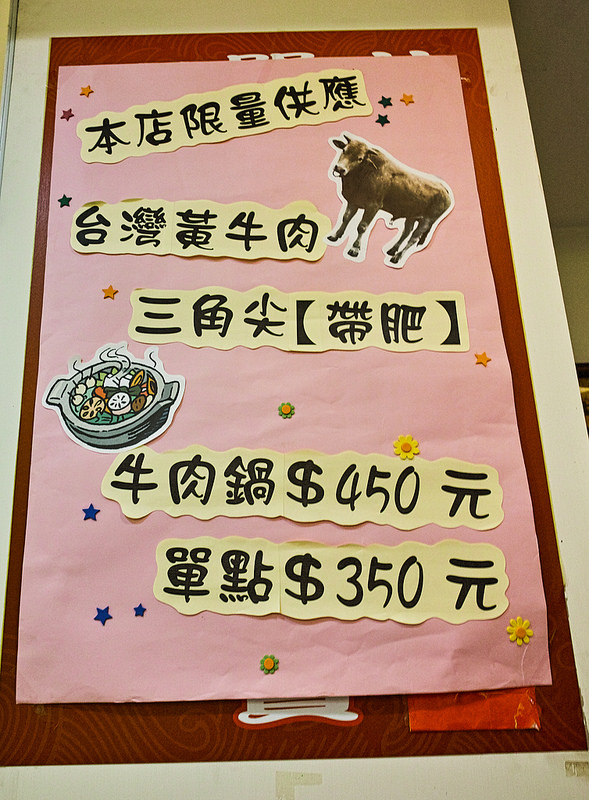 本店限量供應
台灣黃牛肉
三角尖【帶肥】
牛肉鍋$450元
單點$350元